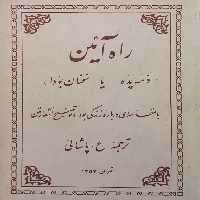 راه آئین
ذمّه پده یا سخنان بودا
با مقدمه‌ای درباره زندگی بودا و توضیح اصطلاحات
ترجمهٔ ع. پاشائی
تهران ۱۳۵۷